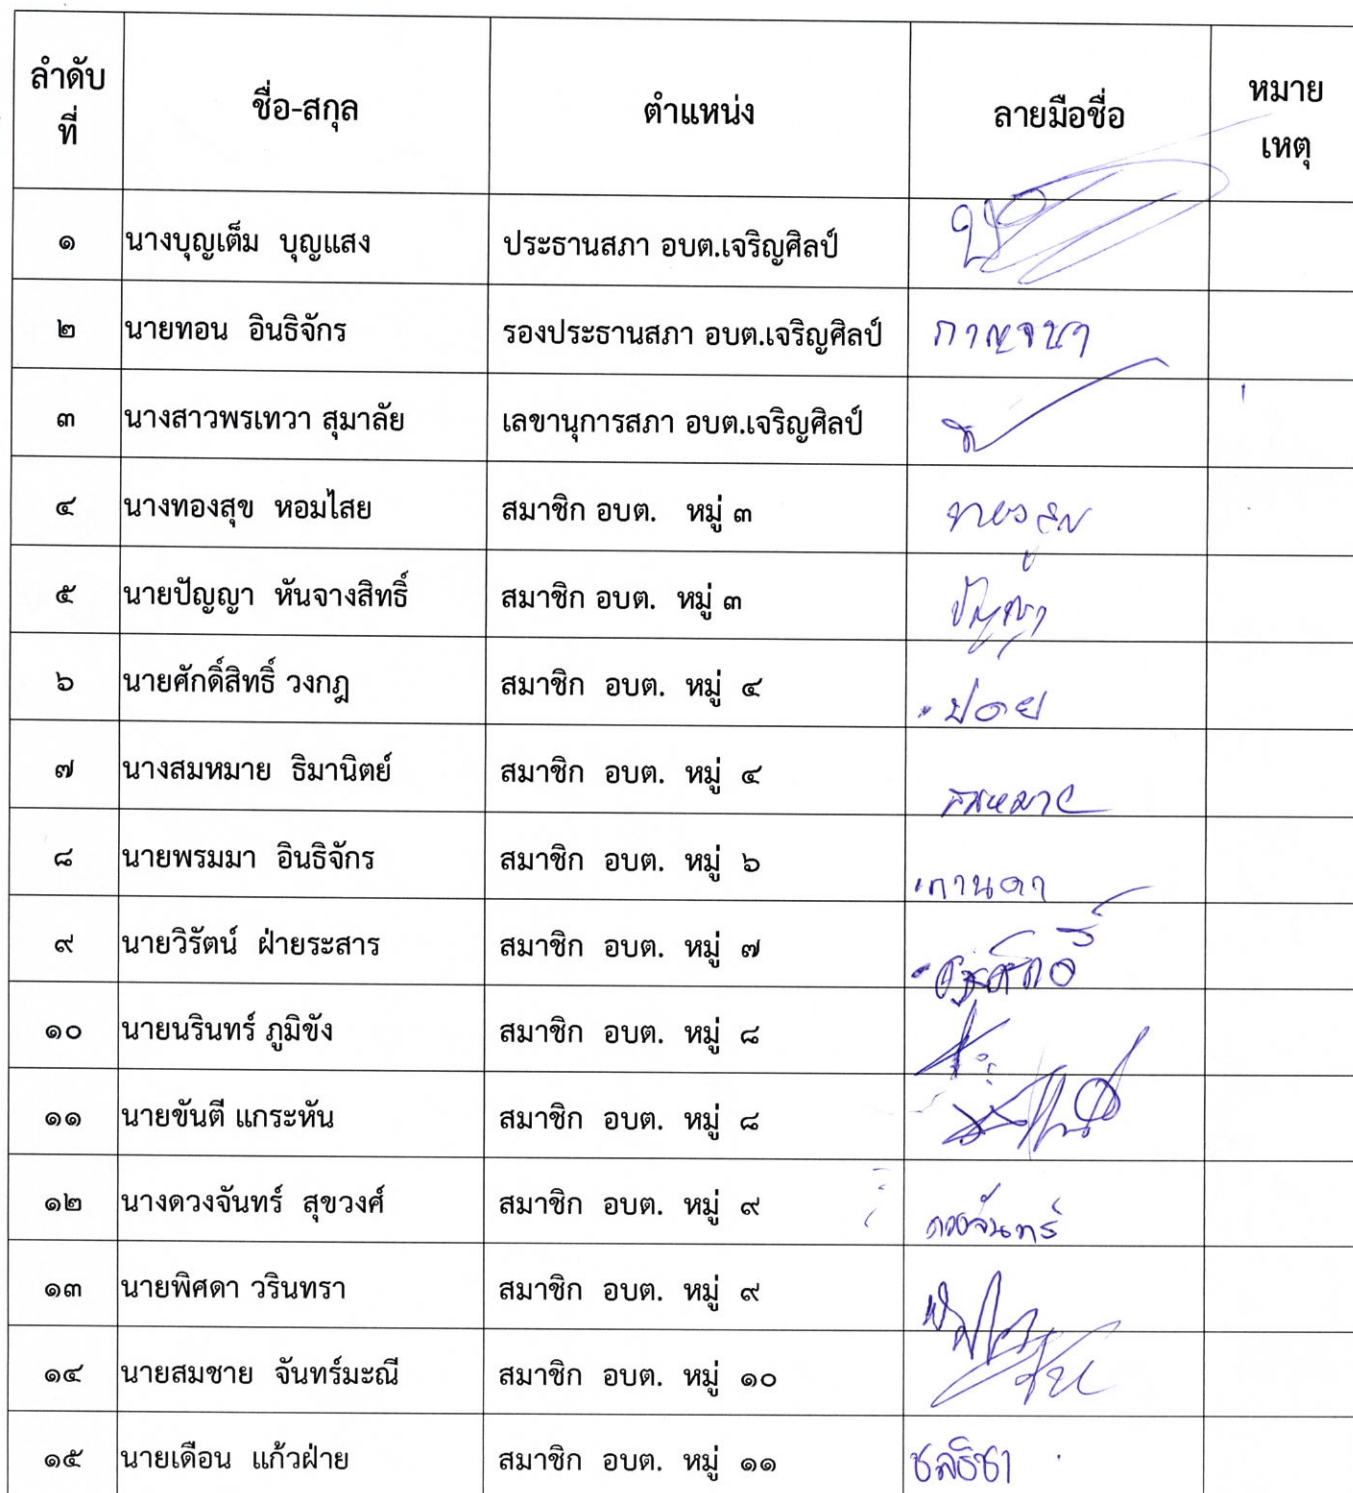 ลำดับที่ ชื่อ-สกุล ตำแหน่ง ลายมือชื่อ หมายเหตุ
๑ นางบุญเต็ม บุญแสง ประธานสภา อบต.เจริญศิลป์
๒ นายทอน อินธิจักร รองประธานสภา อบต.เจริญศิลป์ กาญจนา
๓ นางสาวพรเทวา สุมาลัย เลขานุการสภา อบต.เจริญศิลป์
๔ นางทองสุข หอมไสย สมาชิก อบต. หมู่ ๓
๕ นายปัญญา หันจางสิทธิ์ สมาชิก อบต. หมู่ ๓ ปัญญา
๖ นายศักดิ์สิทธิ์ วงกฎ สมาชิก อบต. หมู่ ๔
๗ นางสมหมาย ธิมานิตย์ สมาชิก อบต. หมู่ ๔ สมหมาย
๘ นายพรมมา อินธิจักร สมาชิก อบต. หมู่ ๖
๙ นายวิรัตน์ ฝ่ายระสาร สมาชิก อบต. หมู่ ๗
๑๐ นายนรินทร์ ภูมิขัง สมาชิก อบต. หมู่ ๘
๑๑ นายขันตี แกระหัน สมาชิก อบต. หมู่ ๘
๑๒ นางดวงจันทร์ สุขวงศ์ สมาชิก อบต. หมู่ ๙ ดวงจันทร์
๑๓ นายพิศดา วรินทรา สมาชิก อบต. หมู่ ๙
๑๔ นายสมชาย จันทร์มะณี สมาชิก อบต. หมู่ ๑๐
๑๕ นายเดือน แก้วฝ่าย สมาชิก อบต. หมู่ ๑๑ ชลธิชา